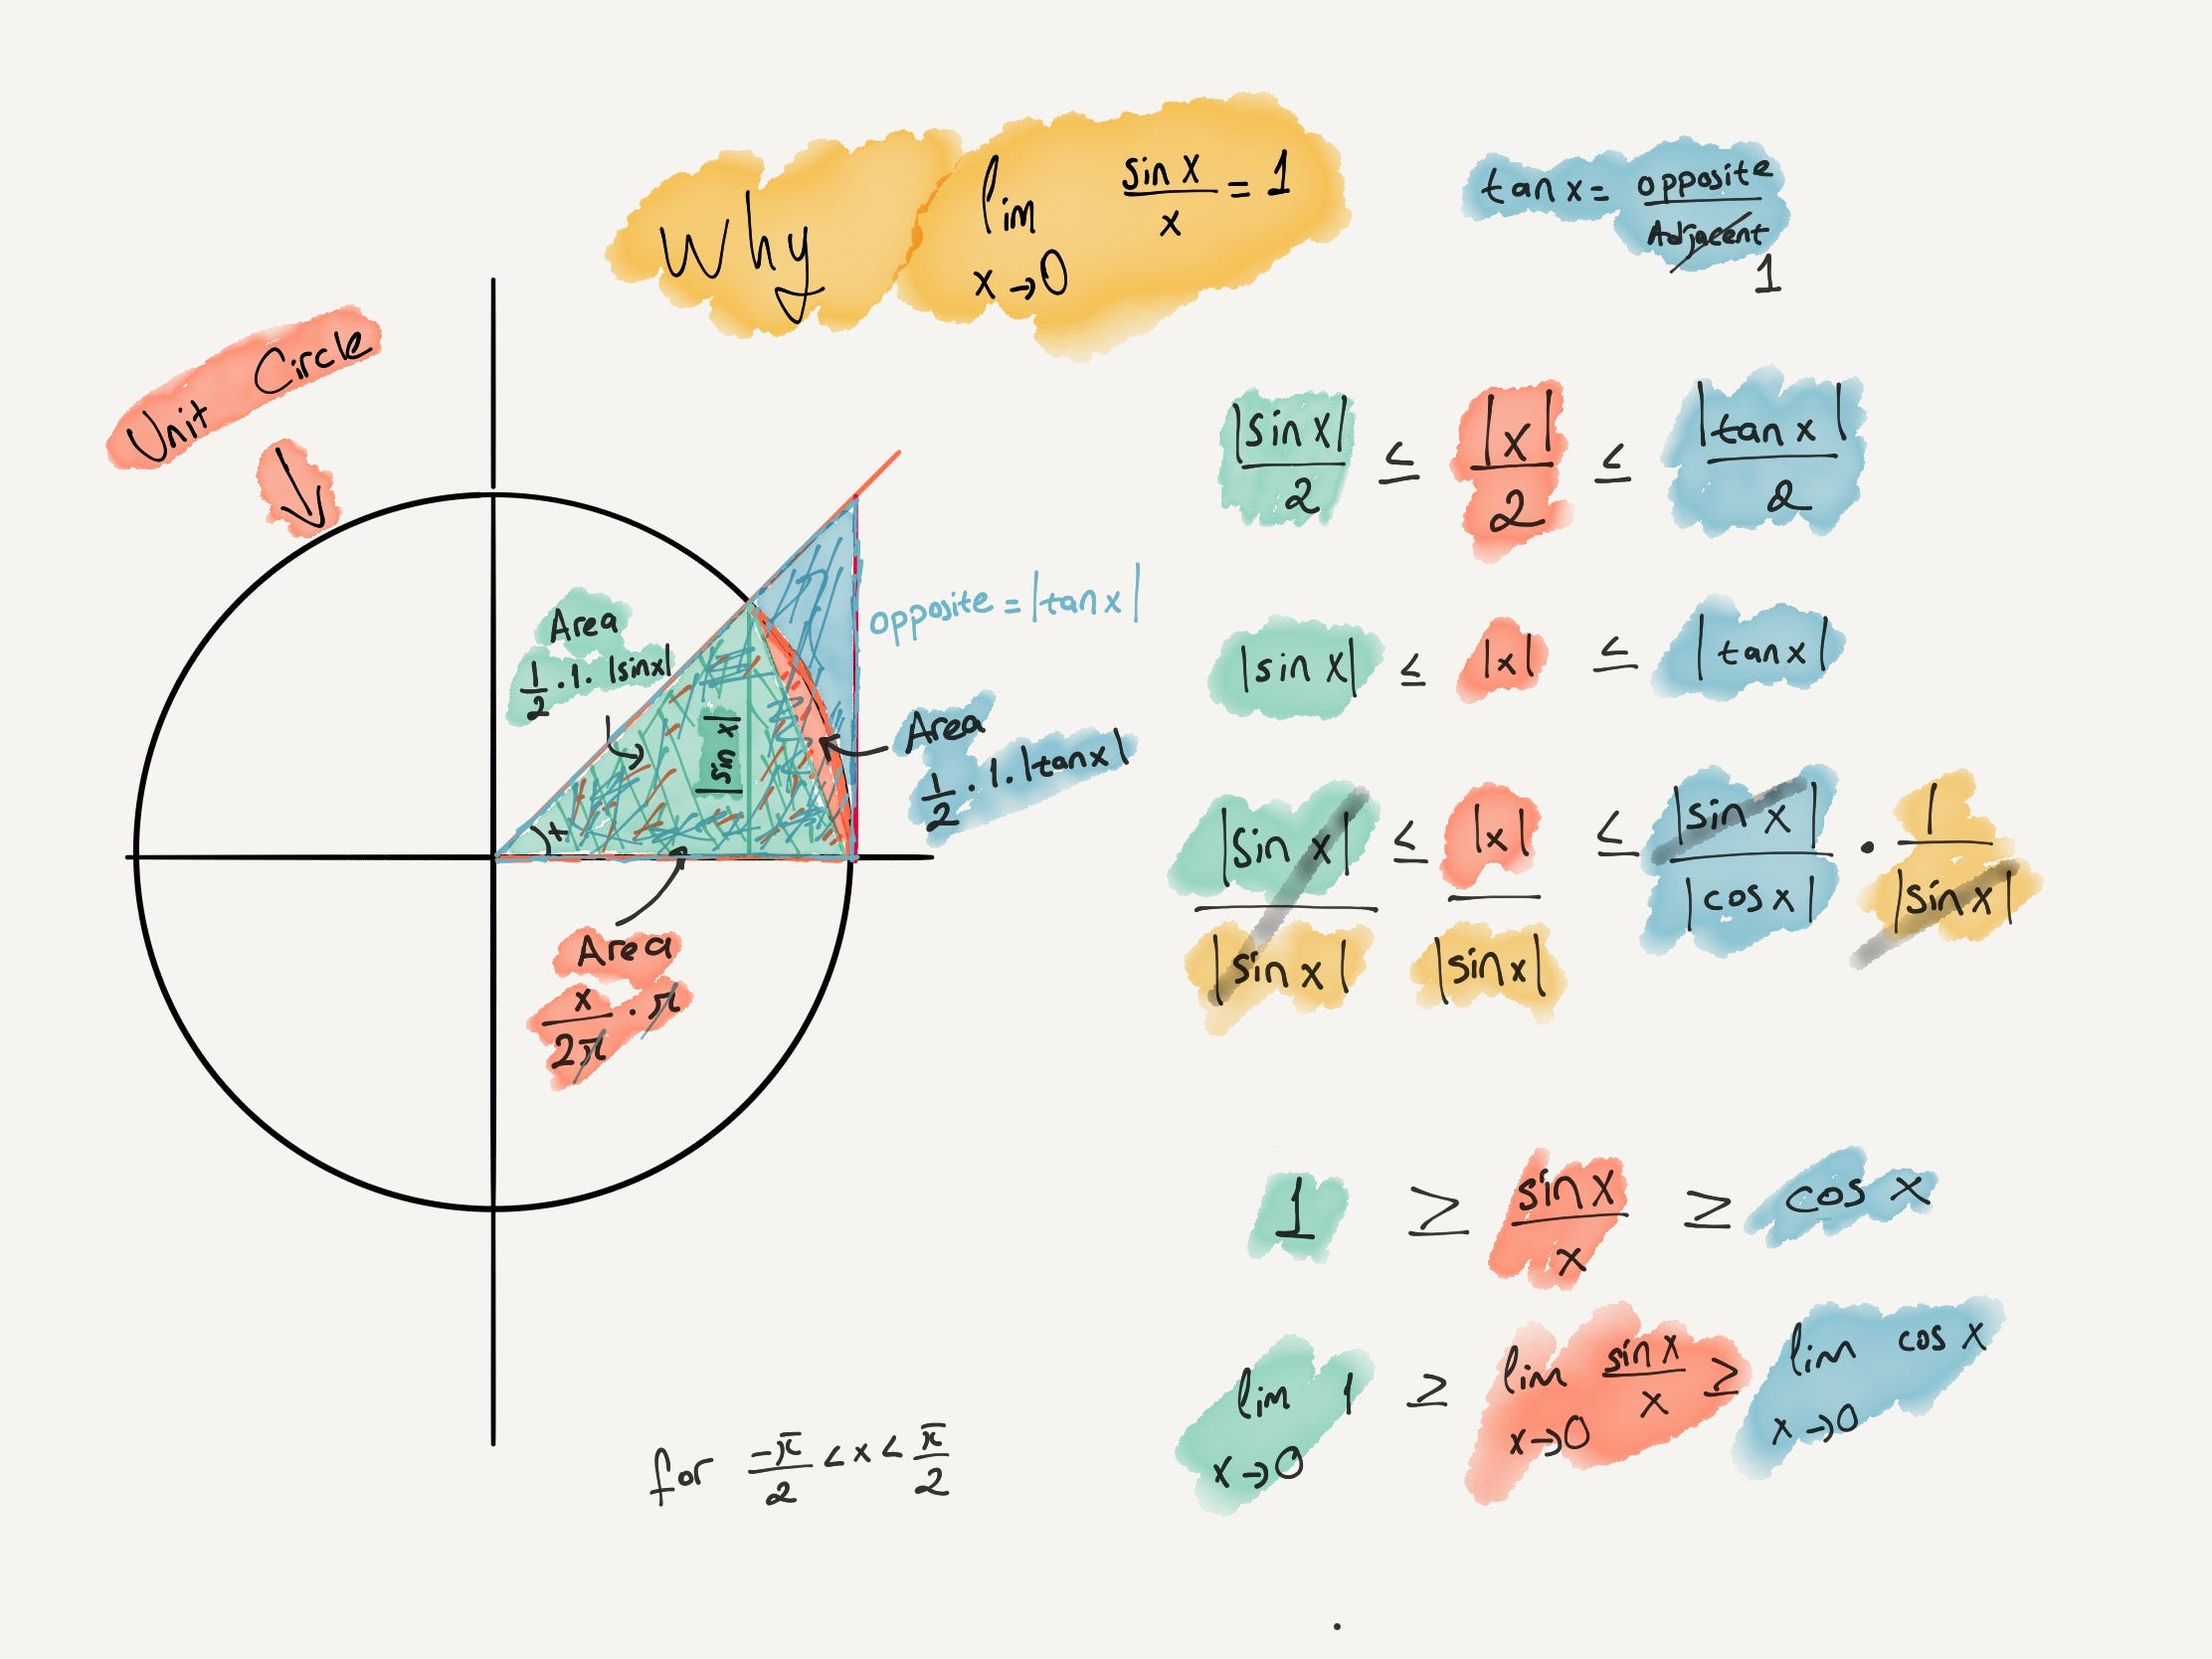 Why lim x→0 sin x / x = 1
tan x = opposite / Adjacent 1
Unit Circle
Area
1/2 · 1 · |sin x|
|sin x|
x
opposite = |tan x|
Area
1/2 · 1 · |tan x|
Area
x/2π · π
for -π/2 < x < π/2
|sin x|/2 ≤ |x|/2 ≤ |tan x|/2
|sin x| ≤ |x| ≤ |tan x|
|sin x|/|sin x| ≤ |x|/|sin x| ≤ |sin x|/|cos x| · 1/|sin x|
1 ≥ sin x / x ≥ cos x
lim x→0 1 ≥ lim x→0 sin x / x ≥ lim x→0 cos x